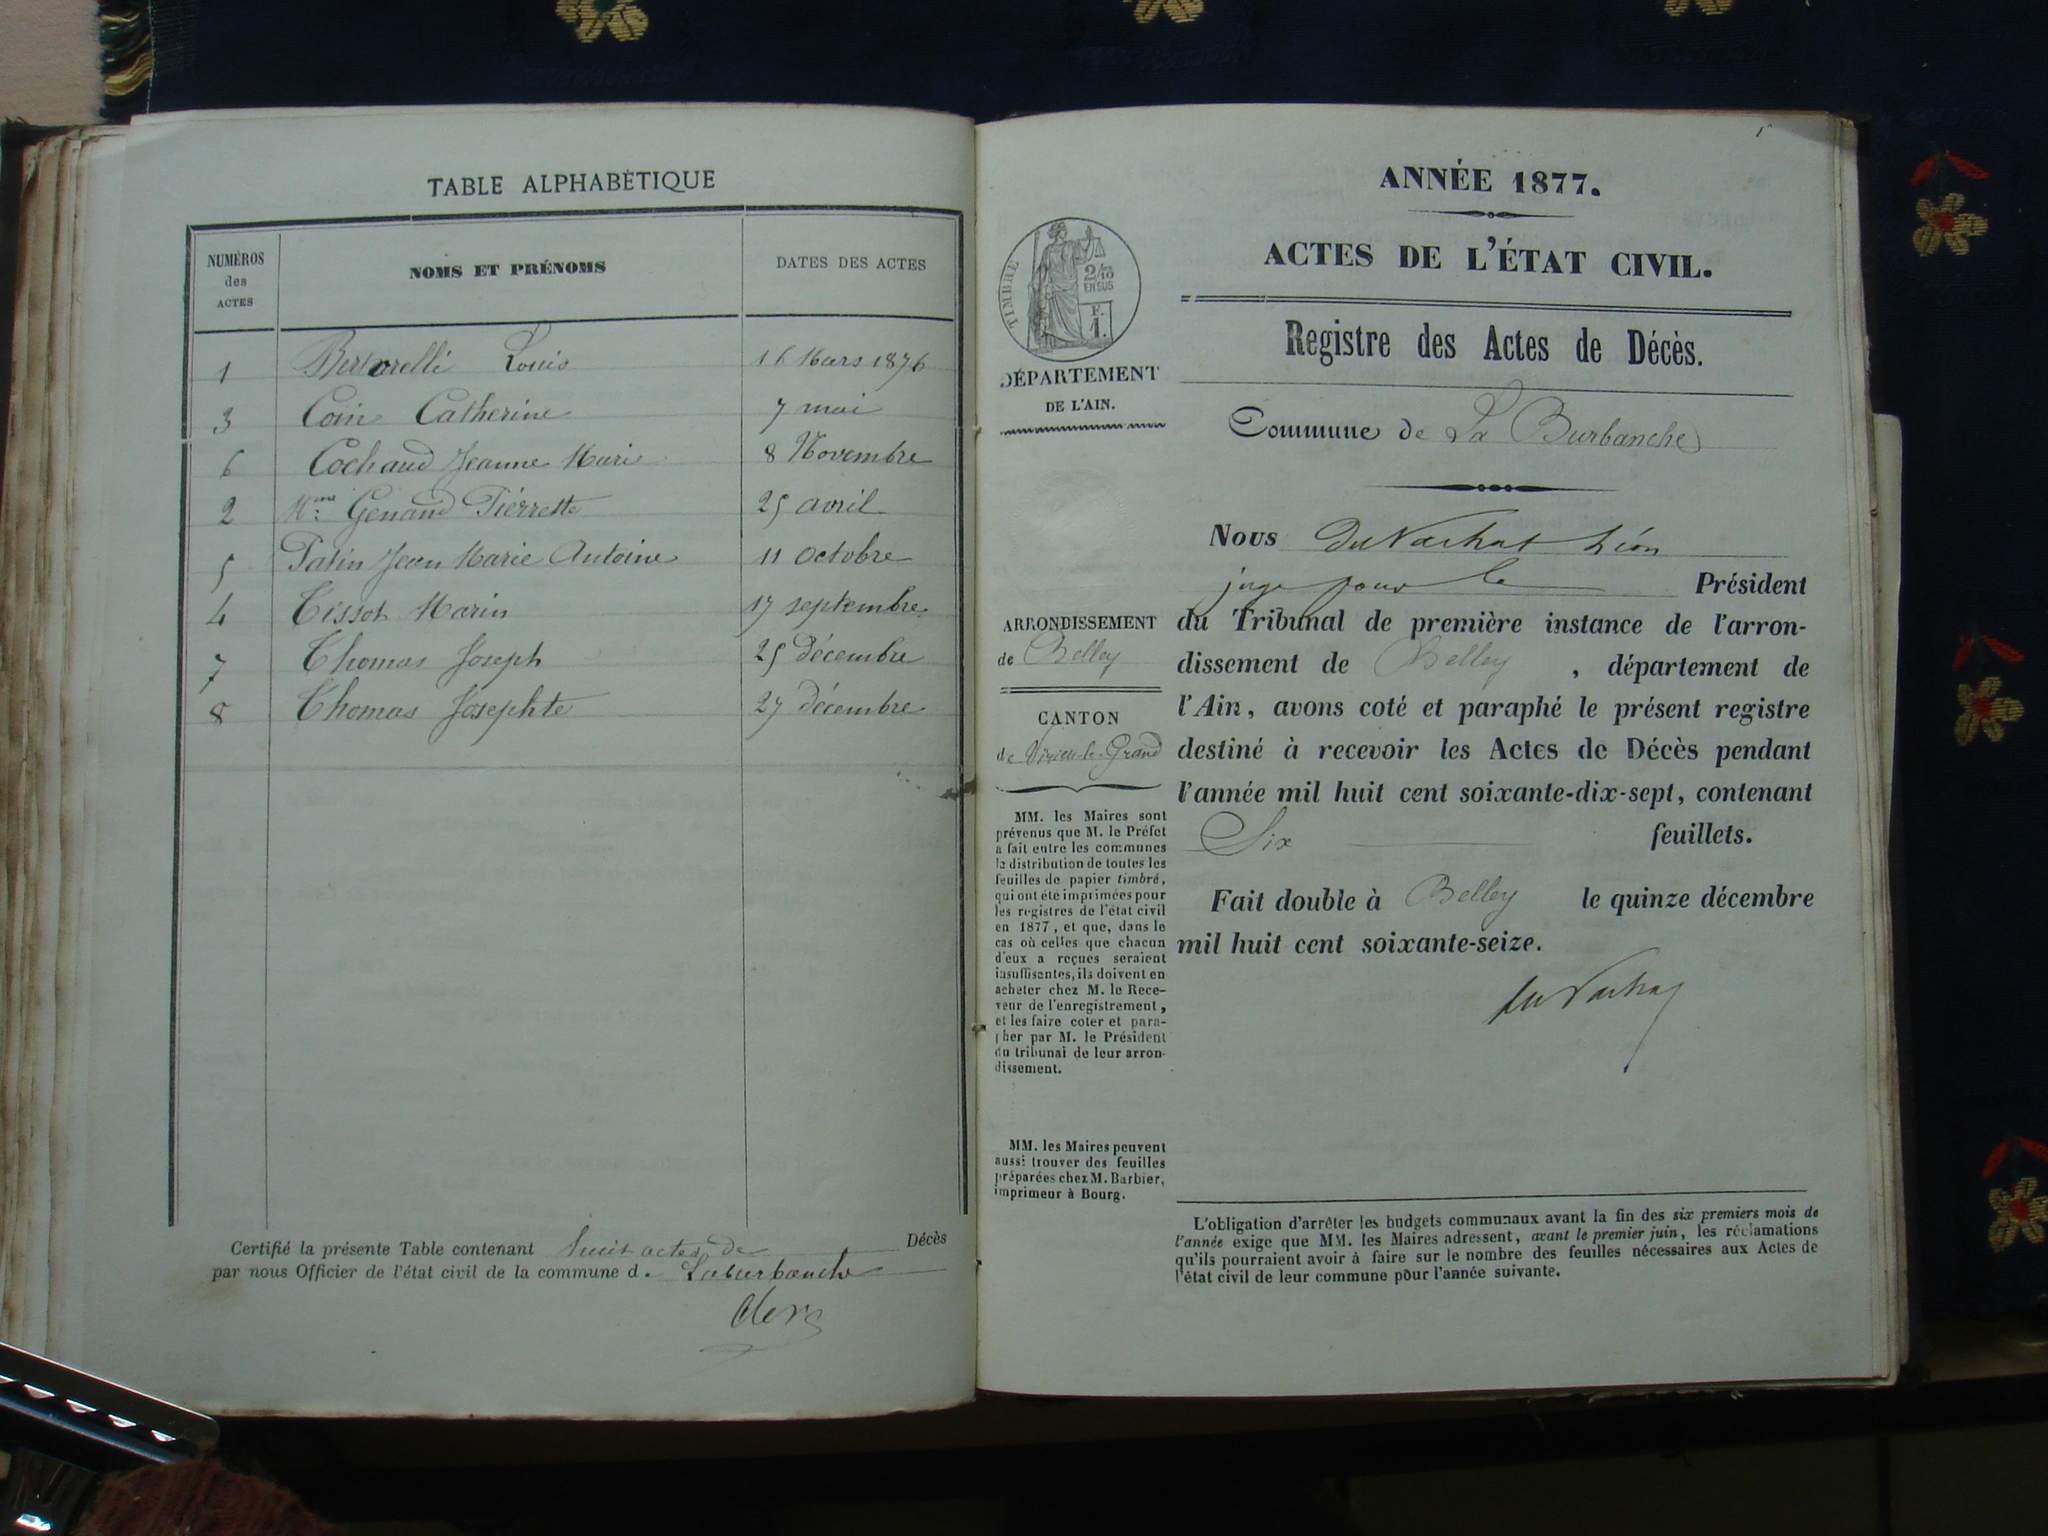 TABLE ALPHABÉTIQUE
NUMÉROS des ACTES
NOMS ET PRÉNOMS
DATES DES ACTES
1 Bertorelli Louis 16 Mars 1876
3 Coin Catherine 7 mai
6 Cochaud Jeanne Marie 8 Novembre
2 Genand Pierrette 25 avril
5 Patin Jean Marie Antoine 11 Octobre
4 Tissot Marin 17 septembre
7 Thomas Joseph 25 décembre
8 Thomas Josephte 27 décembre
Certifié la présente Table contenant huit actes de Décès
par nous Officier de l'état civil de la commune d. Laburbanche
1
ANNÉE 1877.
ACTES DE L'ÉTAT CIVIL.
TIMBRE
2/10
EN SUS
F.
1.
DÉPARTEMENT
DE L'AIN.
Registre des Actes de Décès.
Commune de La Burbanche
Nous Du Vachat Léon
juge pour le Président
du Tribunal de première instance de l'arron-
dissement de Belley, département de
l'Ain, avons coté et paraphé le présent registre
destiné à recevoir les Actes de Décès pendant
l'année mil huit cent soixante-dix-sept, contenant
Six feuillets.
Fait double à Belley le quinze décembre
mil huit cent soixante-seize.
du Vachat
ARRONDISSEMENT
de Belley
CANTON
de Virieu-le-Grand
MM. les Maires sont
prévenus que M. le Préfet
a fait entre les communes
la distribution de toutes les
feuilles de papier timbré,
qui ont été imprimées pour
les registres de l'état civil
en 1877, et que, dans le
cas où celles que chacun
d'eux a reçues seraient
insuffisantes, ils doivent en
acheter chez M. le Rece-
veur de l'enregistrement,
et les faire coter et para-
pher par M. le Président
du tribunal de leur arron-
dissement.
MM. les Maires peuvent
aussi trouver des feuilles
préparées chez M. Barbier,
imprimeur à Bourg.
L'obligation d'arrêter les budgets communaux avant la fin des six premiers mois de
l'année exige que MM. les Maires adressent, avant le premier juin, les réclamations
qu'ils pourraient avoir à faire sur le nombre des feuilles nécessaires aux Actes de
l'état civil de leur commune pour l'année suivante.